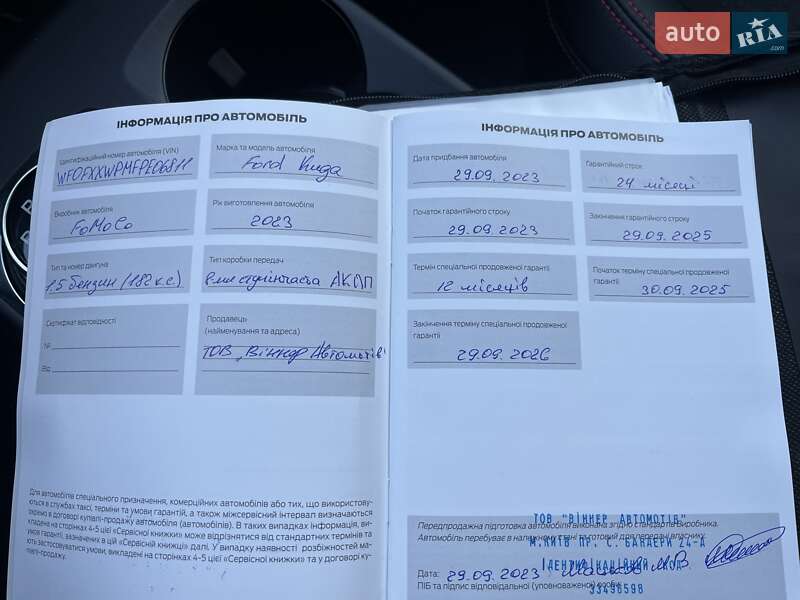 auto RIA
.com
ІНФОРМАЦІЯ ПРО АВТОМОБІЛЬ
Ідентифікаційний номер автомобіля (VIN)
WF0FXXWPMFPE06811
Марка та модель автомобіля
Ford Kuga
Виробник автомобіля
FoMoCo
Рік виготовлення автомобіля
2023
Тип та номер двигуна
1.5 бензин (182 к.с)
Тип коробки передач
8ми ступінчаста АКПП
Сертифікат відповідності
№
Від
Продавець
(найменування та адреса)
ТОВ „Віннер Автомотів"
Для автомобілів спеціального призначення, комерційних автомобілів або тих, що використову-
ються в службах таксі, терміни та умови гарантій, а також міжсервісний інтервал визначаються
окремо в договорі купівлі-продажу автомобіля (автомобілів). В таких випадках інформація, ви-
кладена на сторінках 4-5 цієї «Сервісної книжки» може відрізнятися від стандартних термінів та
умов гарантії, зазначених в цій «Сервісній книжці» далі. У випадку наявності розбіжностей ма-
ють застосовуватися умови, викладені на сторінках 4-5 цієї «Сервісної книжки» та у договорі ку-
півлі-продажу.
ІНФОРМАЦІЯ ПРО АВТОМОБІЛЬ
Дата придбання автомобіля
29.09.2023
Гарантійний строк
24 місяці
Початок гарантійного строку
29.09.2023
Закінчення гарантійного строку
29.09.2025
Термін спеціальної продовженої гарантії
12 місяців
Початок терміну спеціальної продовженої
гарантії
30.09.2025
Закінчення терміну спеціальної продовженої
гарантії
29.09.2026
ТОВ "ВІННЕР АВТОМОТІВ"
Передпродажна підготовка автомобіля виконана згідно стандартів Виробника.
Автомобіль перебуває в належному стані та готовий для передачі власнику.
М.КИЇВ ПР. С. БАНДЕРИ 24-А
ІДЕНТИФІКАЦІЙНИЙ КОД
Дата: 29.09.2023
ПІБ та підпис відповідальної (уповноваженої) особи:
33496598